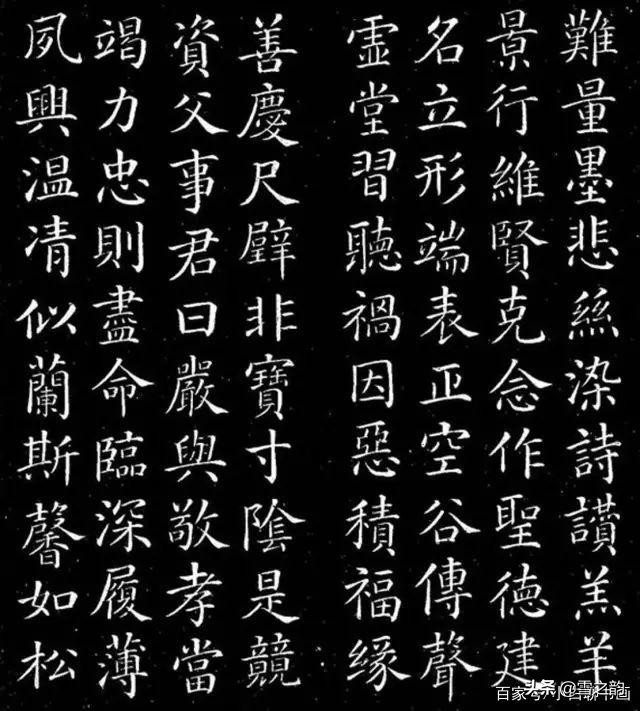 難量墨悲絲染詩讚羔羊
景行維賢克念作聖德建
名立形端表正空谷傳聲
虛堂習聽禍因惡積福緣
善慶尺璧非寶寸陰是競
資父事君曰嚴與敬孝當
竭力忠則盡命臨深履薄
夙興温凊似蘭斯馨如松
头条 @雪之韵